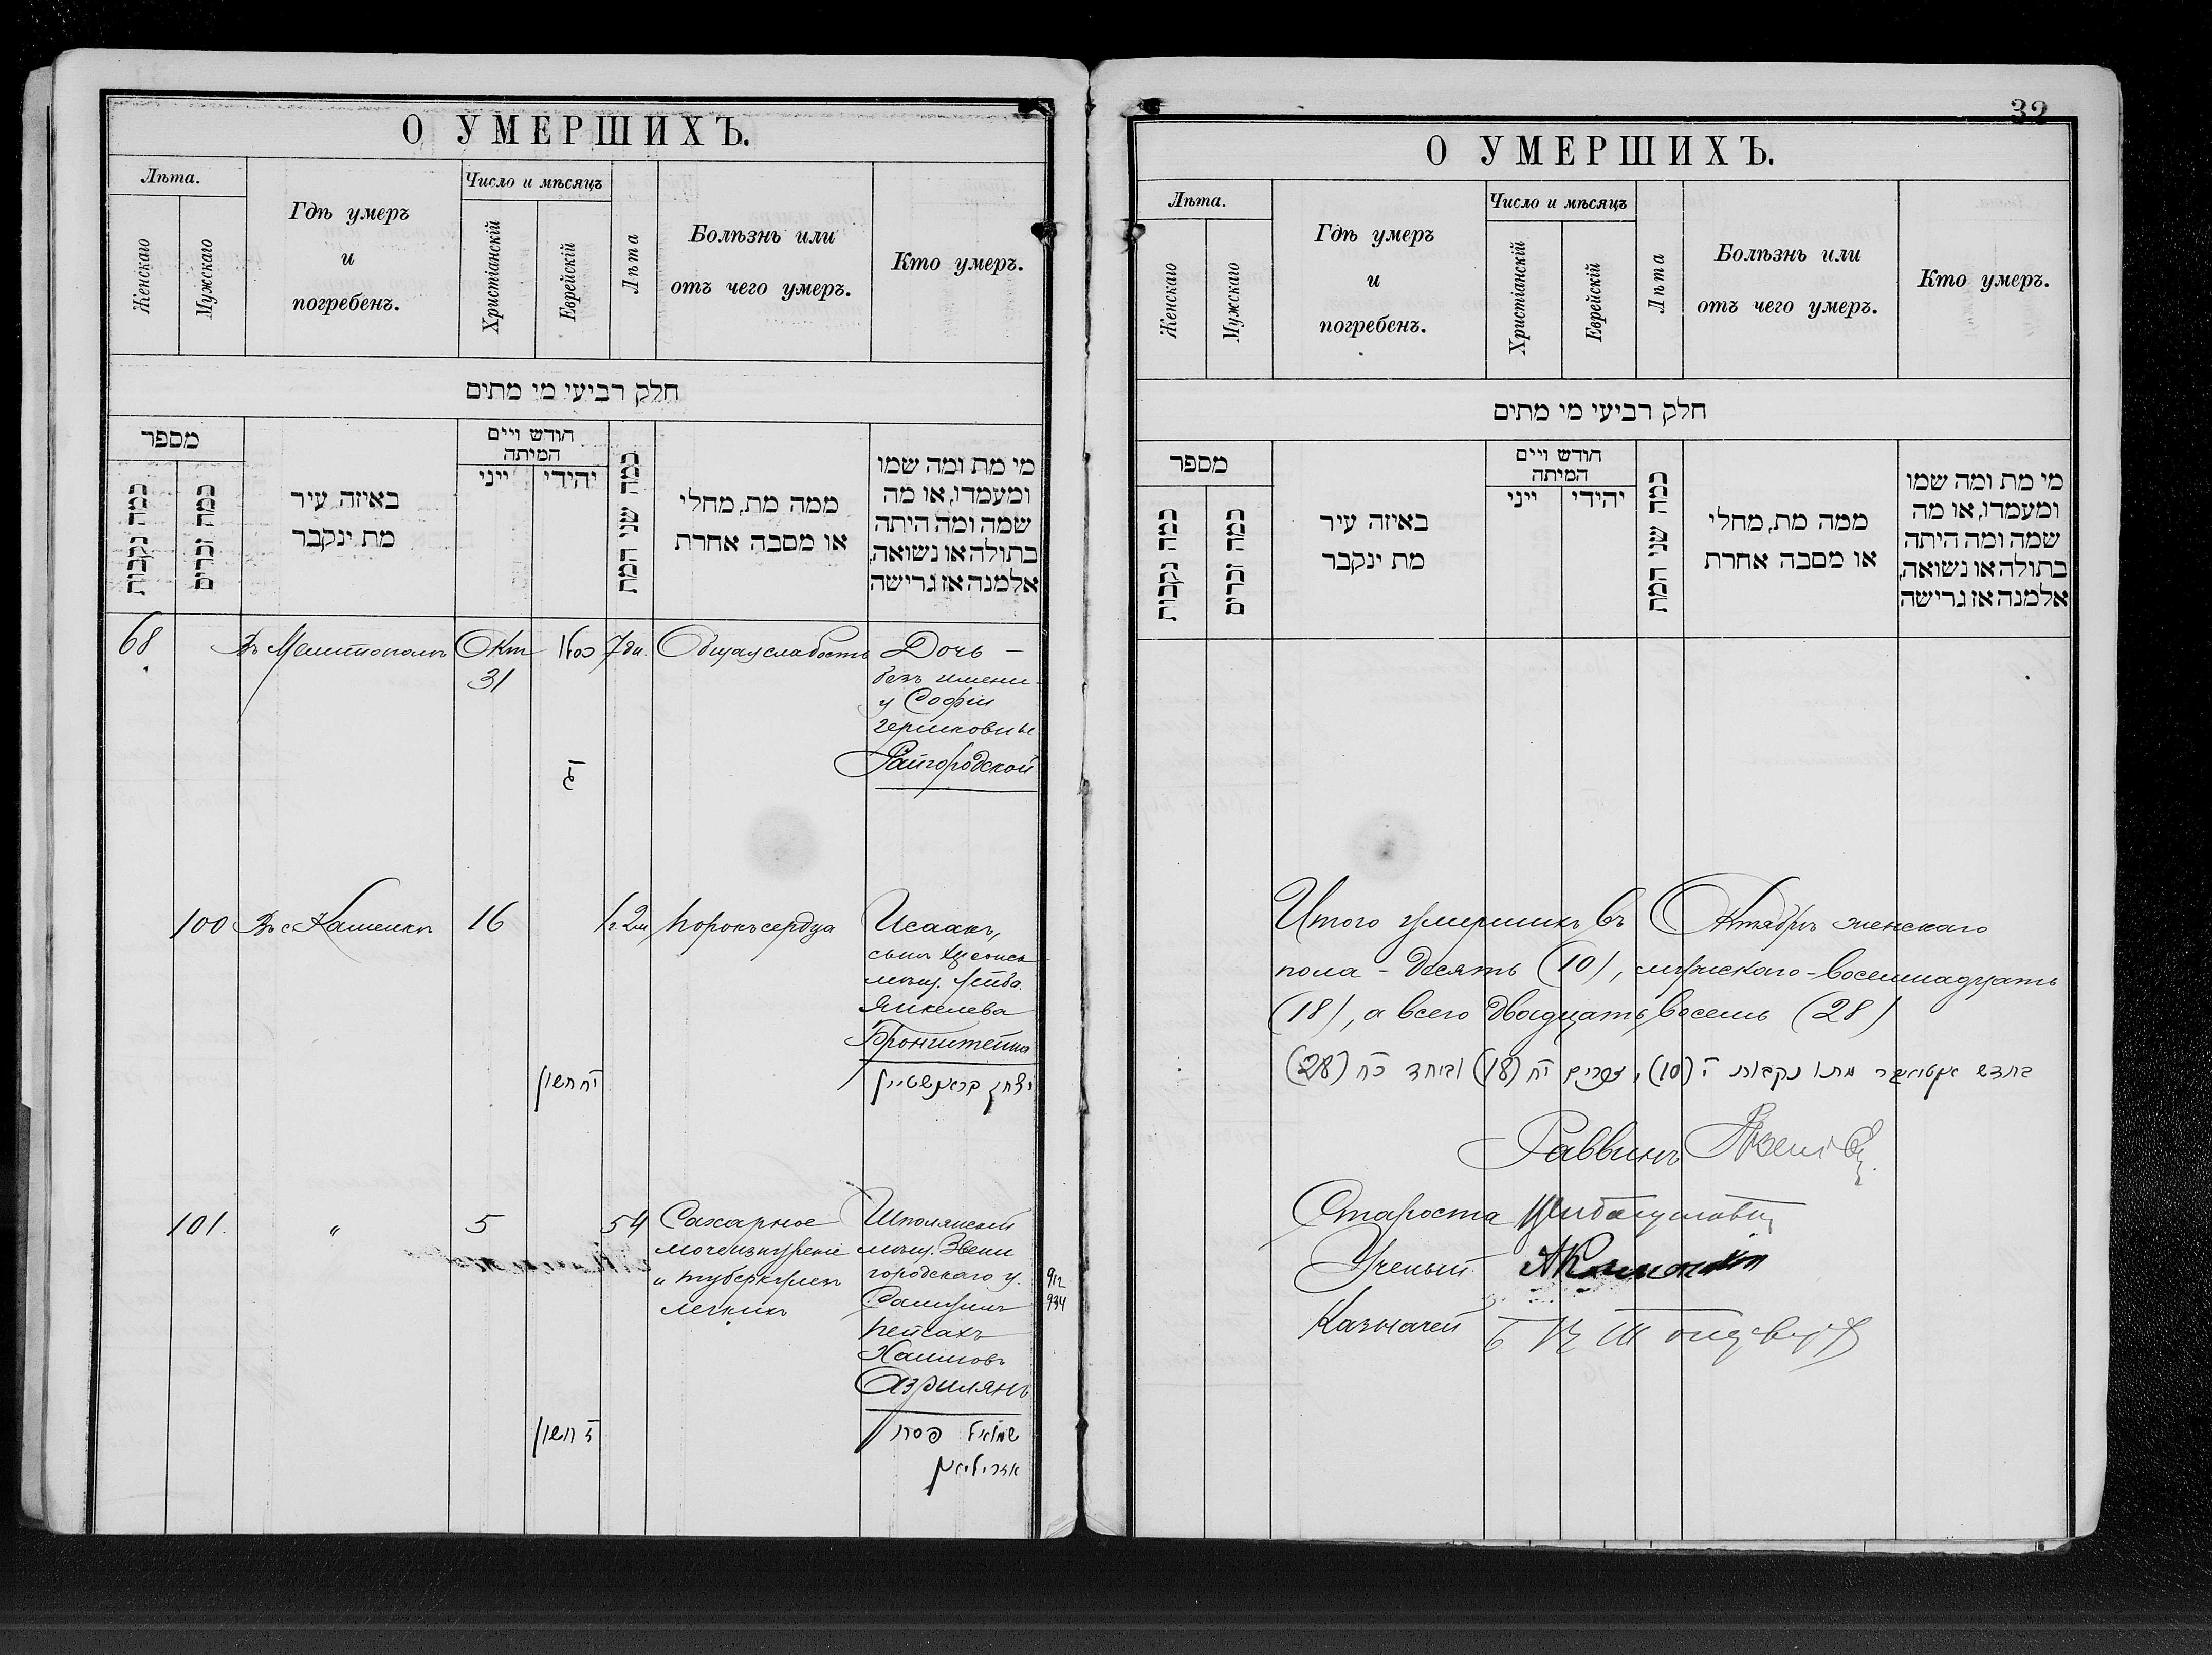 О УМЕРШИХЪ.
Лѣта.
Женскаго
Мужскаго
Гдѣ умеръ
и
погребенъ.
Число и мѣсяцъ
Христіанскій
Еврейскій
Лѣта
Болѣзнь или
отъ чего умеръ.
Кто умеръ.
חלק רביעי מי מתים
מספר
כמה נקבות
כמה זכרים
באיזה עיר
מת ינקבר
חודש ויים
המיתה
ייני
יהידי
כמה שני המת
ממה מת, מחלי
או מסבה אחרת
מי מת ומה שמו
ומעמדו, או מה
שמה ומה היתה
בתולה או נשואה,
אלמנה אז גרישה
68
Въ Мелитополѣ
Окт
31
כסלו
ב
7 дн.
Общая слабость
Дочь –
безъ имени
у Софіи
Гершковны
Райгородской
100
Въ с Каменкѣ
16
יח חשון
1 г. 2 м
Порокъ сердца
Исаакъ,
сынъ
мѣщ. Лейба
Янкелева
Бронштейна
יצחק בראנשטיין
101.
"
5
ז חשון
54
Сахарное
мочеизнуреніе
и туберкулезъ
легкихъ
Шполянскій
мѣщ. Звени
городскаго у.
Самуилъ
Пейсахъ
Хаимовъ
Азрилянъ
שמואל פסח
אזריליאן
912
934
32
О УМЕРШИХЪ.
Лѣта.
Женскаго
Мужскаго
Гдѣ умеръ
и
погребенъ.
Число и мѣсяцъ
Христіанскій
Еврейскій
Лѣта
Болѣзнь или
отъ чего умеръ.
Кто умеръ.
חלק רביעי מי מתים
מספר
כמה נקבות
כמה זכרים
באיזה עיר
מת ינקבר
חודש ויים
המיתה
ייני
יהידי
כמה שני המת
ממה מת, מחלי
או מסבה אחרת
מי מת ומה שמו
ומעמדו, או מה
שמה ומה היתה
בתולה או נשואה,
אלמנה אז גרישה
Итого умершихъ въ Октябрѣ женскаго
пола – десять (10), мужскаго – восемнадцать
(18), а всего двадцать восемь (28)
בחדש אקטיאבר מתו נקבות י (10), זכרים יח (18) וביחד כח (28)
Раввинъ
Староста
Ученый
Казначей